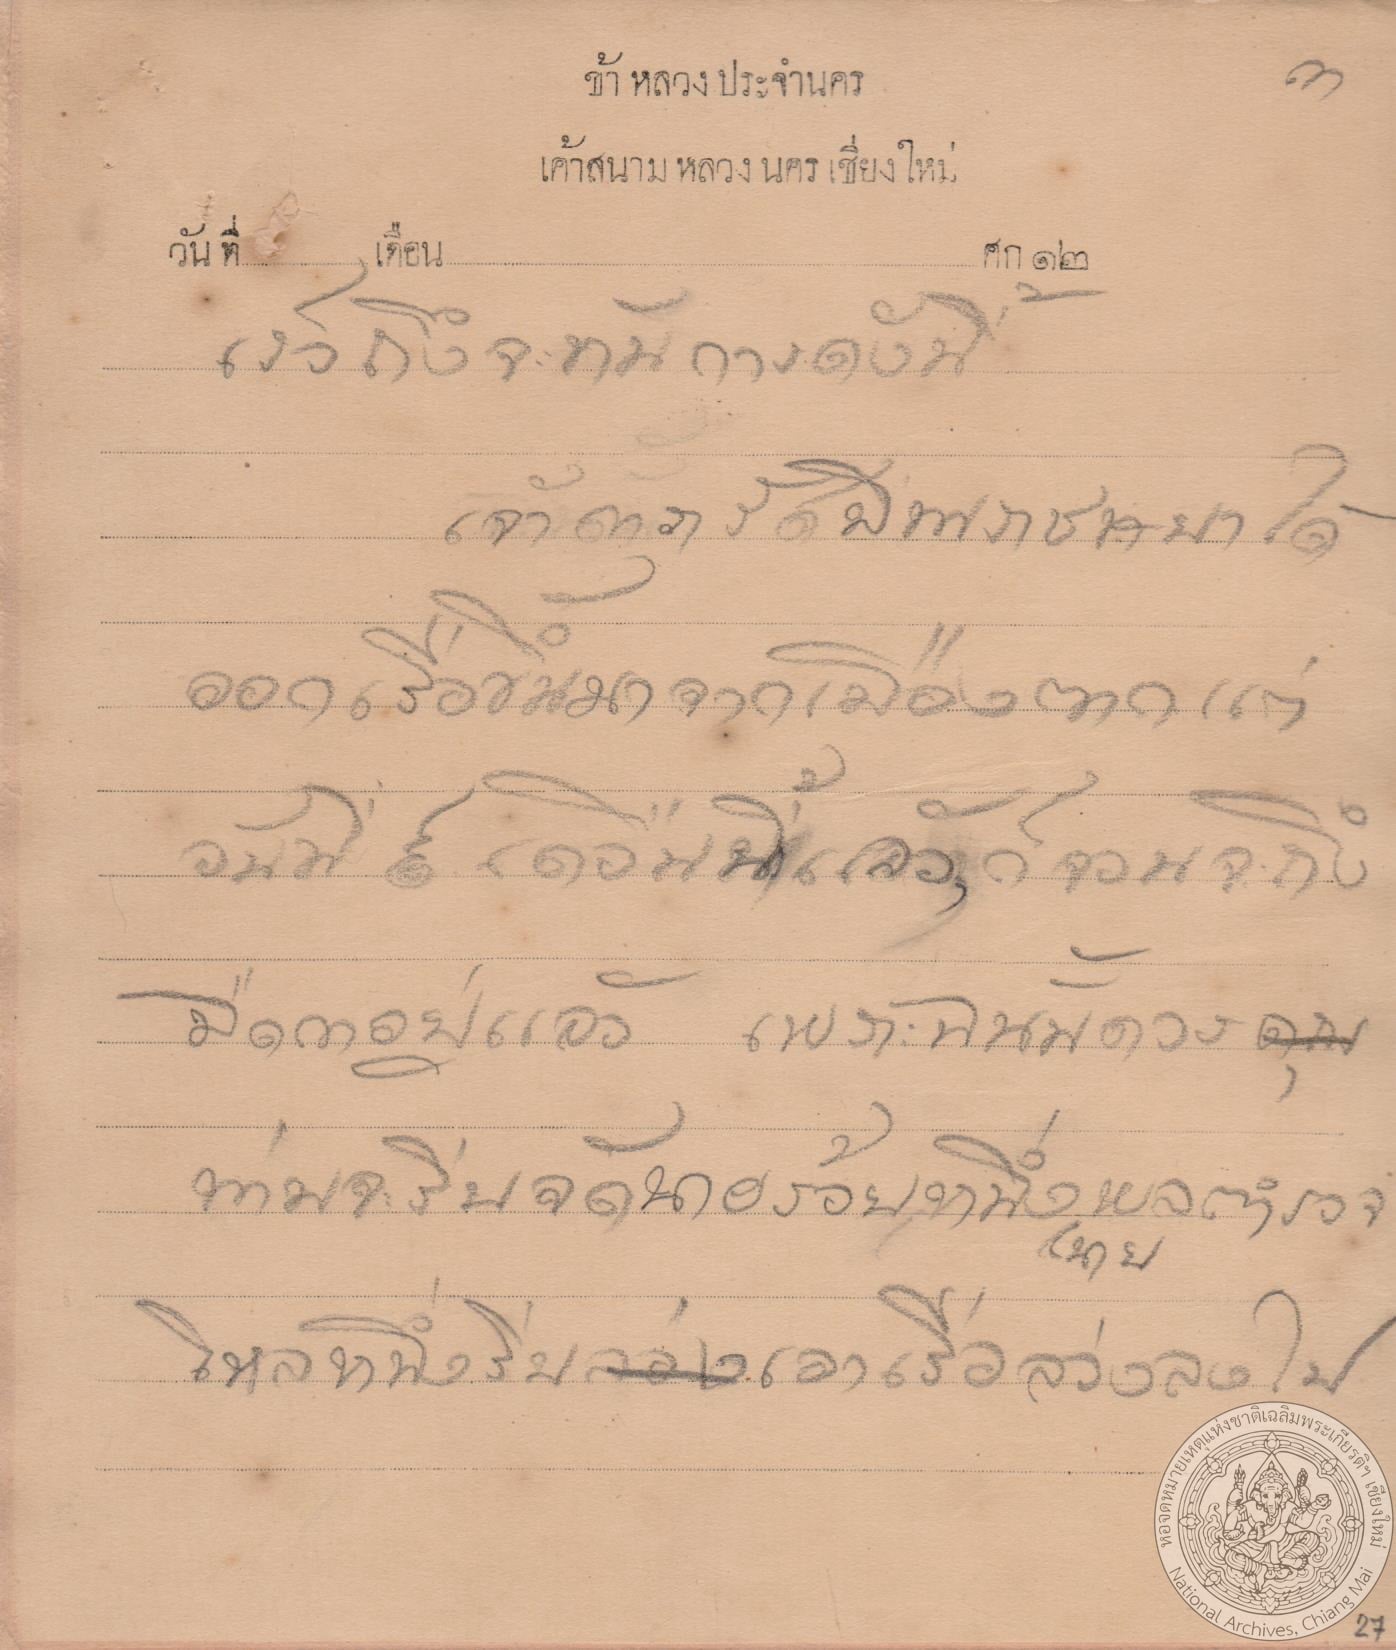 ๓
ข้า หลวง ประจำนคร
เค้าสนาม หลวง นคร เชียงใหม่
วัน ที่ เดือน ศก ๑๒
เร็วถึงจะทันการดังนี้
เจ้า
ออกเรือขึ้นมาจากเมืองตากแต่
วันที่ ๕ เดือนนี้แล้วก็จวนจะถึง
มืดกาอยู่แล้ว เพราะฉนั้นควร คุณ
ท่านจะรีบจัดนายร้อยหนึ่งพลตำรวจ
นาย
ไหลหนึ่งรีบ ล่อง เอาเรือล่วงลงไป
หอจดหมายเหตุแห่งชาติเฉลิมพระเกียรติฯ เชียงใหม่
National Archives, Chiang Mai
27